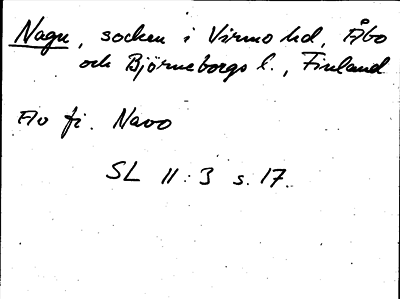 Nagu, socken i Virmo hd, Åbo
och Björneborgs l., Finland
Av fi. Navo
SL 11:3 s. 17.